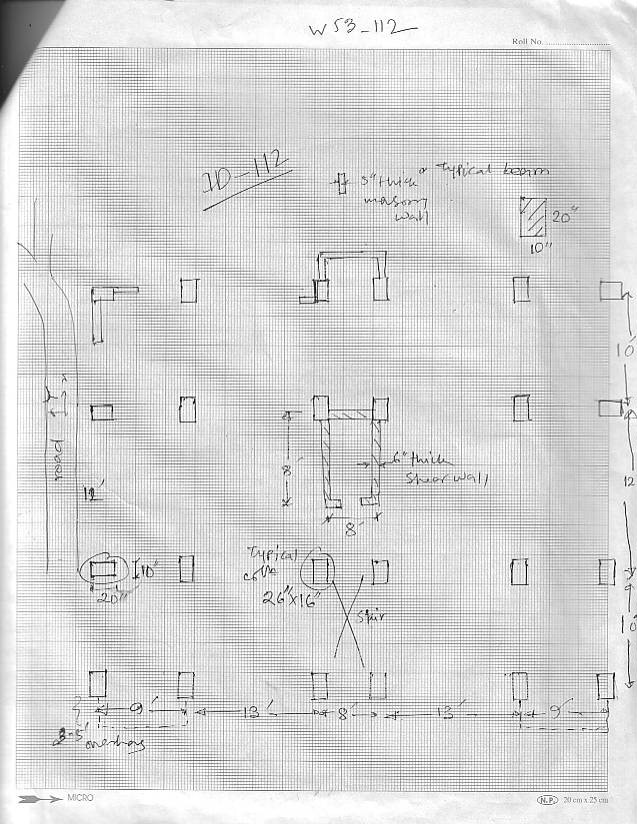 W53-112
Roll No.
ID-112
5" thick
masonry
wall
Typical beam
20"
10"
10'
road
12'
8'
6" thick
shear wall
8'
12
Typical
10"
20"
26"x16"
Stair
10'
9'
13'
8'
13'
9'
overhang
MICRO
N.P.
20 cm x 25 cm